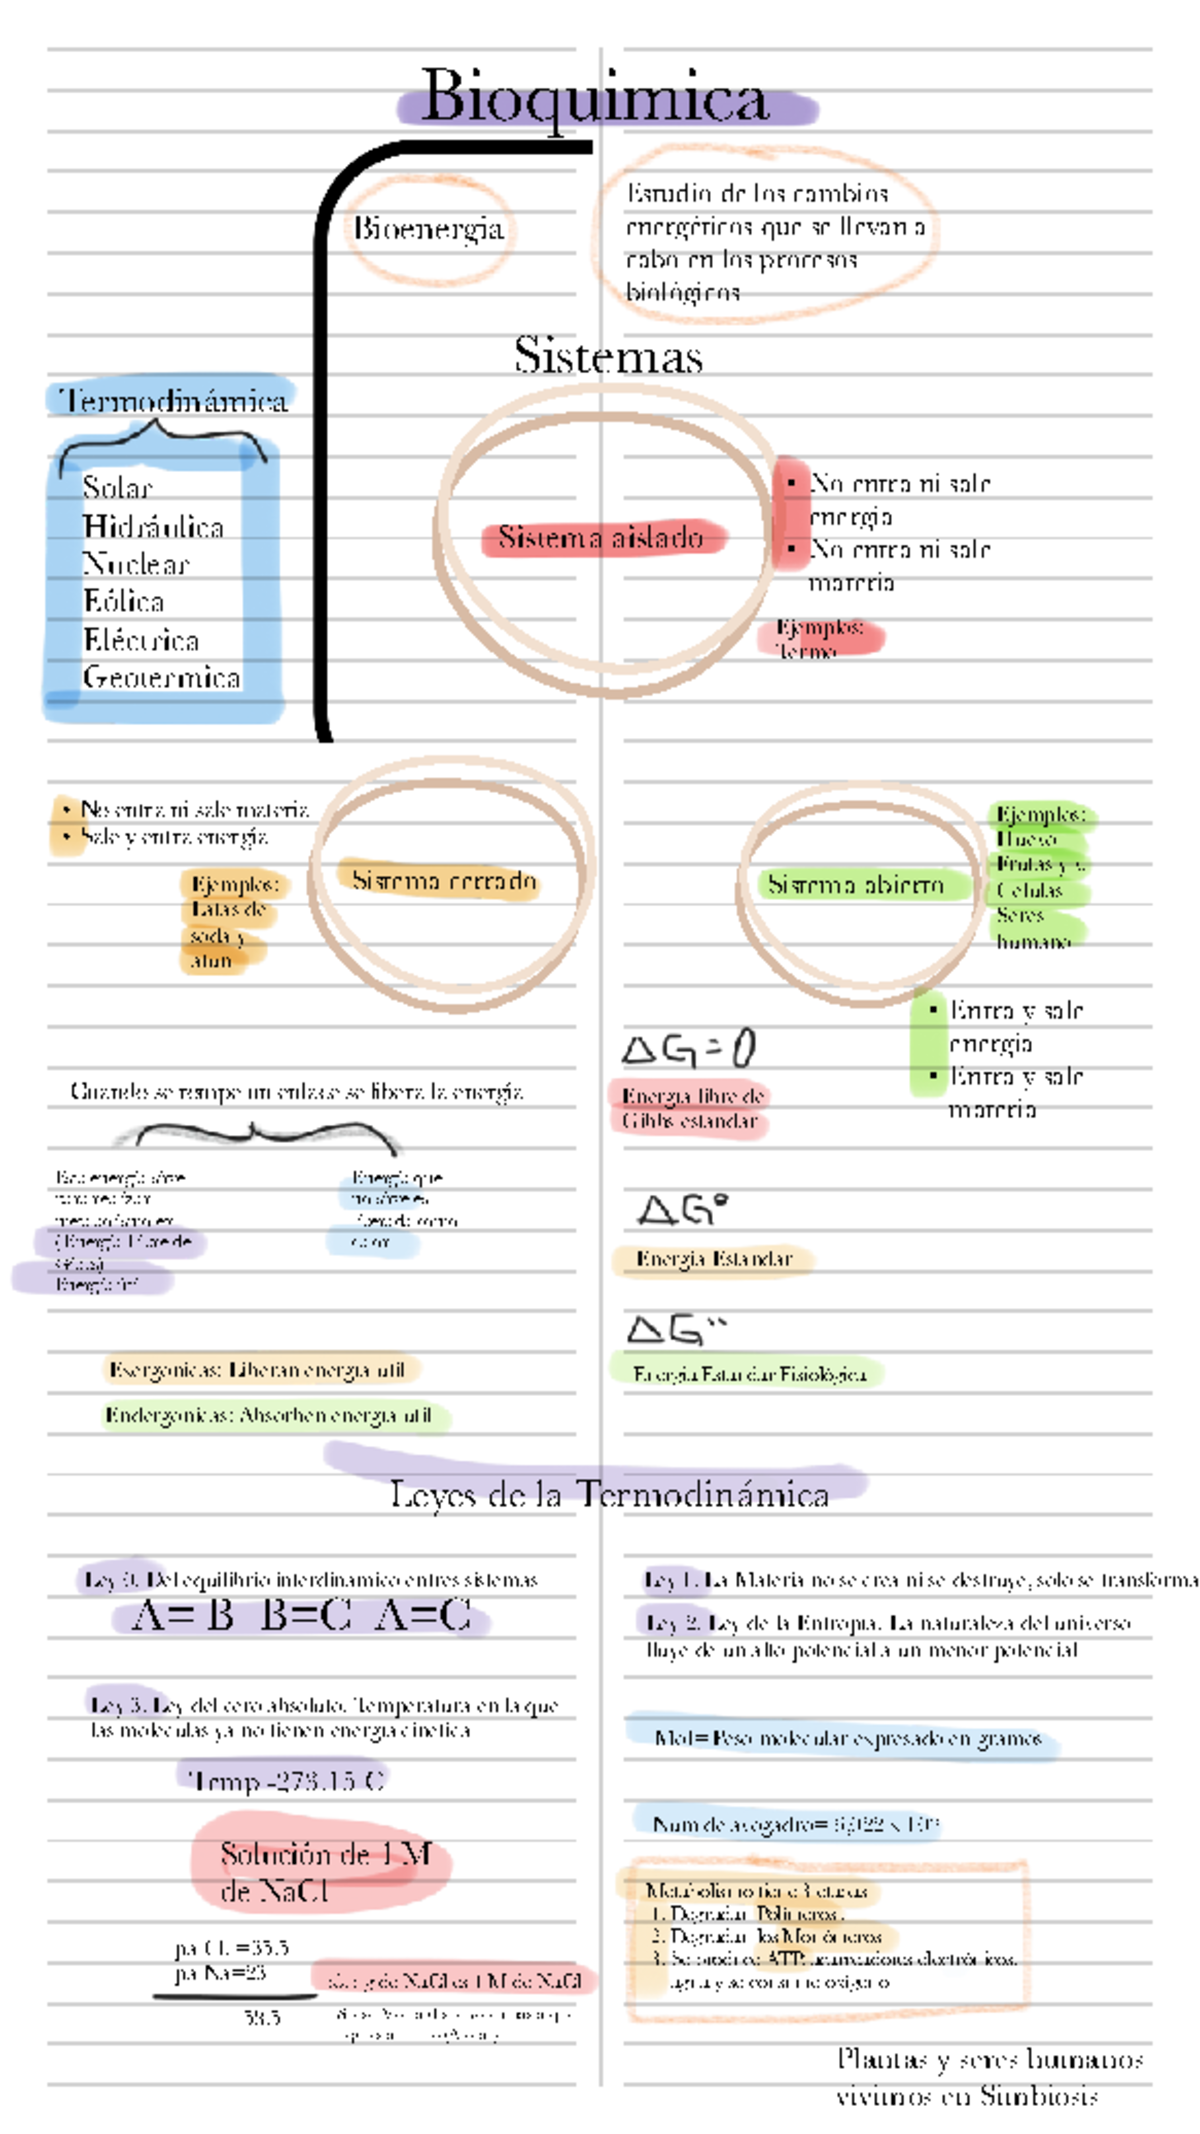 Bioquimica
Bioenergia
Estudio de los cambios
energéticos que se llevan a
cabo en los procesos
biológicos
Sistemas
Termodinámica
Solar
Hidráulica
Nuclear
Eólica
Eléctrica
Geotermica
Sistema aislado
• No entra ni sale
energia
• No entra ni sale
materia
Ejemplos:
Termo
• No entra ni sale materia
• Sale y entra energía
Ejemplos:
Latas de
soda y
atun
Sistema cerrado
Sistema abierto
Ejemplos:
Huevo
Frutas y v.
Celulas
Seres
humano
• Entra y sale
energia
• Entra y sale
materia
Cuando se rompe un enlase se libera la energía
Energía que
(Energía Libre de
Energía útil
ΔG=0
Energia libre de
Gibbs estandar
ΔG°
Energia Estandar
ΔG¨
Energia Estandar Fisiológica
Exergonicas: Liberan energia util
Endergonicas: Absorben energia util
Leyes de la Termodinámica
Ley 0. Del equilibrio interdinamico entres sistemas
A= B B=C A=C
Ley 3. Ley del cero absoluto. Temperatura en la que
las moleculas ya no tienen energia cinetica
Temp -273.15 C
Ley 1. La Materia no se crea ni se destruye, solo se transforma
Ley 2. Ley de la Entropia. La naturaleza del universo
fluye de un alto potencial a un menor potencial
Mol= Peso molecular expresado en gramos
Num de avogadro= 6,022 x
Solución de 1 M
de NaCl
pa CL =35.5
pa Na=23
58.5
g de NaCl es 1 M de NaCl
Metabolismo tiene 3 etapas
1. Degradar Polimeros.
2. Degradar los Monómeros
3. Se produce ATP, electrónicos,
agua y se consume oxigeno
Plantas y seres humanos
vivimos en Simbiosis